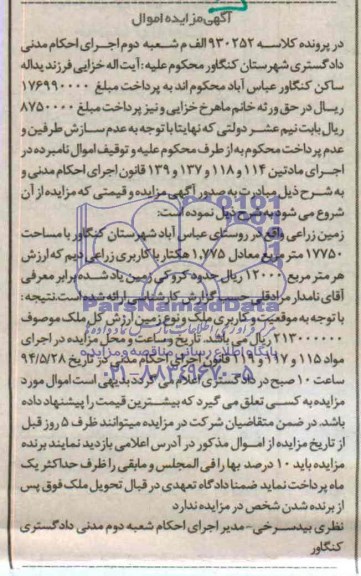 آگهی مزایده اموال
در پرونده کلاسه ۹۳۰۲۵۲ الف م شعبه دوم اجرای احکام مدنی
دادگستری شهرستان کنگاور محکوم علیه: آیت اله خزایی فرزند یداله
ساکن کنگاور عباس آباد محکوم اند به پرداخت مبلغ ۱۷۶۹۹۰۰۰۰
ریسال در حق ورثه خانم ماهرخ خزایی و نیز پرداخت مبلغ ۸۷۵۰۰۰۰
ریال بابت نیم عشر دولتی که نهایتا با توجه به عدم سازش طرفین و
عدم پرداخت محکوم به از طرف محکوم علیه و توقیف اموال نامبرده در
اجرای مادتین ۱۱۴ و ۱۱۸ و ۱۳۷ و ۱۳۹ قانون اجرای احکام مدنی و
به شرح ذیل مبادرت به صدور آگهی مزایده و قیمتی که مزایده از آن
شروع می شود به شرح ذیل نموده است:
زمین زراعی واقع در روستای عباس آباد شهرستان کنگاور با مساحت
۱۷۷۵۰ متر مربع معادل ۱,۷۷۵ هکتار با کاربری زراعی دیم که ارزش
هر متر مربع ۱۲۰۰۰ ریال حدود کروکی زمین یاد شده برابر معرفی
آقای نامدار مرادقلی حسب گزارش کارشناسی ارائه شده است. نتیجه:
با توجه به موقعیت و کاربری ملک و نوع زمین ارزش کل ملک موصوف
۲۱۳۰۰۰۰۰۰ ریال می باشد. تاریخ وساعت و محل مزایده در اجرای
مواد ۱۱۵ و ۱۱۷ و ۱۱۹ قانون اجرای احکام مدنی در تاریخ ۹۴/۵/۲۸
ساعت ۱۰ صبح در دادگستری اعلام می گردد بدیهی است اموال مورد
مزایده به کسی تعلق می گیرد که بیشترین قیمت را پیشنهاد داده
باشد. در ضمن متقاضیان شرکت در مزایده میتوانند ظرف ۵ روز قبل
از تاریخ مزایده از اموال مذکور در آدرس اعلامی بازدید نمایند برنده
مزایده باید ۱۰ درصد بها را فی المجلس و مابقی را ظرف حداکثر یک
ماه پرداخت نماید ضمنا دادگاه تعهدی در قبال تحویل ملک فوق پس
از برنده شدن شخص در مزایده ندارد
نظری بیدسرخی - مدیر اجرای احکام شعبه دوم مدنی دادگستری
کنگاور
ParsNamadData
پایگاه اطلاع رسانی مناقصه و مزایده
۰۲۱-۸۸۳۴۹۶۷۰-۵